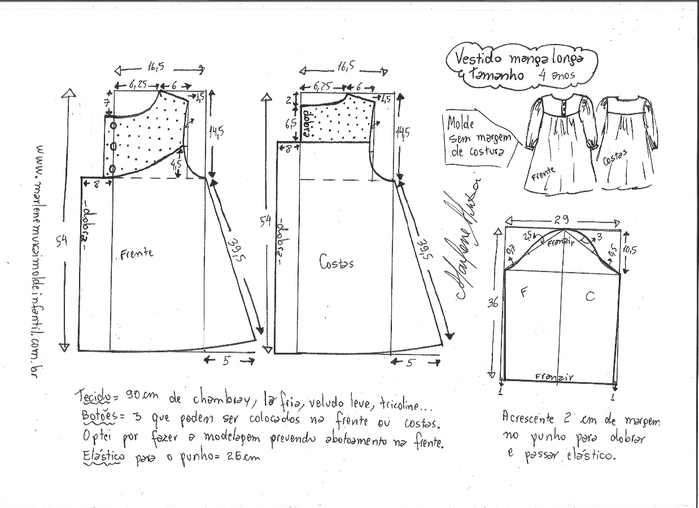 Vestido manga longa
Tamanho 4 anos
Molde
sem margem
de costura
Frente
Costas
16,5
6,25
6
1,5
7
14,5
4,5
8
-dobra-
54
Frente
39,5
5
16,5
6,25
6
1,5
2
6,5
dobra
14,5
8
-dobra-
54
Costas
39,5
5
29
2,5
Franzir
3
9,5
10,5
36
F
C
Franzir
1
1
www.marlenemukaimoldeinfantil.com.br
Marlene Mukai
Tecido= 90cm de chambray, lã fria, veludo leve, tricoline...
Botões= 3 que podem ser colocados na frente ou costas.
Optei por fazer a modelagem prevendo abotoamento na frente.
Elástico para o punho= 25cm
Acrescente 2 cm de margem
no punho para dobrar
e passar elástico.